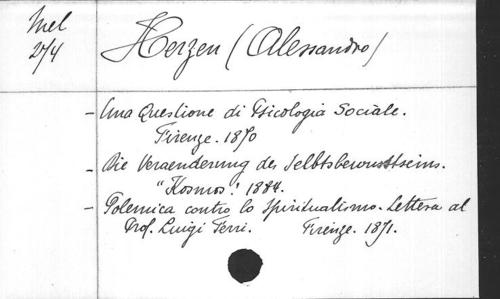 Mel
2/4
Herzen (Alessandro)
- Una Questione di Psicologia Sociale.
Firenze. 1870
- Die Veraenderung des Selbtsbewusstseins.
"Kosmos". 1884.
- Polemica contro lo Spiritualismo. Lettera al
Prof. Luigi Ferri. Firenze. 1871.